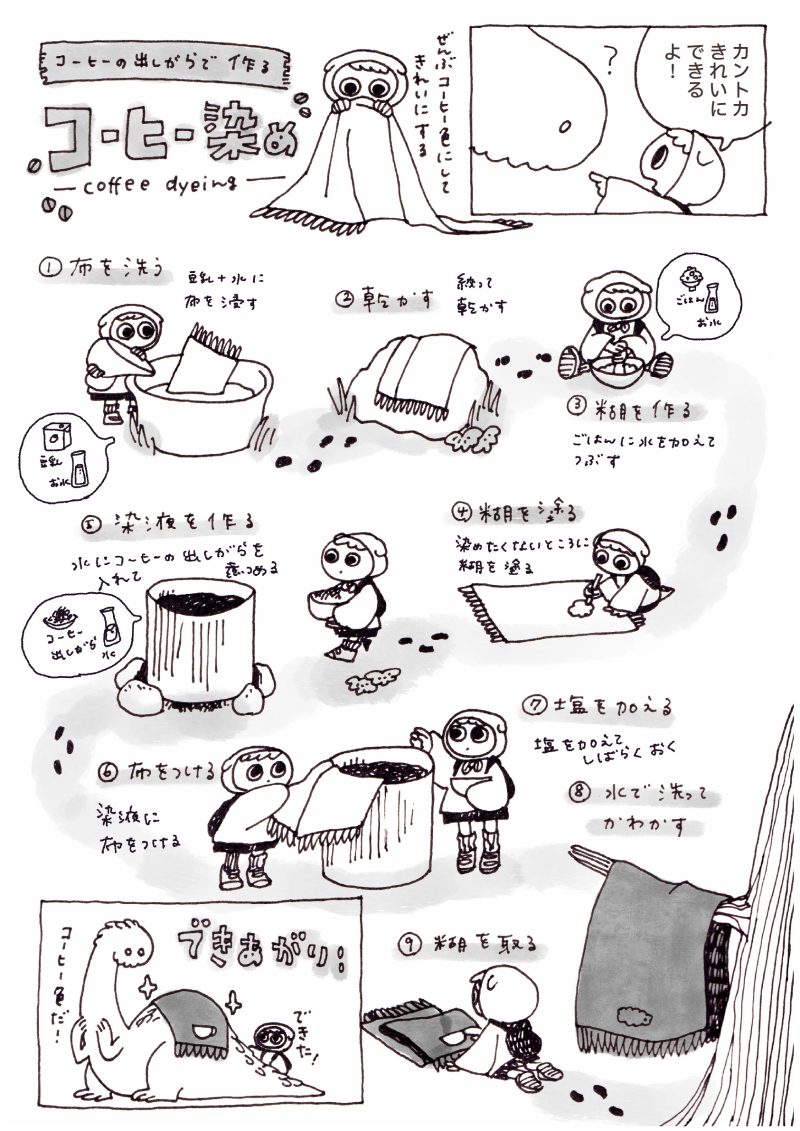 コーヒーの出しがらで作る
コーヒー染め
coffee dyeing
ぜんぶコーヒー色にして
きれいにする
カントカ
きれいに
できる
よ!
?
①布を洗う
豆乳+水に
布を浸す
豆乳
お水
②乾かす
絞って
乾かす
ごはん
お水
③糊を作る
ごはんに水を加えて
つぶす
④糊を塗る
染めたくないところに
糊を塗る
⑤染液を作る
水にコーヒーの出しがらを
入れて
煮つめる
コーヒー
出しがら
水
⑥布をつける
染液に
布をつける
⑦塩を加える
塩を加えて
しばらくおく
⑧水で洗って
かわかす
⑨糊を取る
できあがり!
コーヒー色だ!
できた!